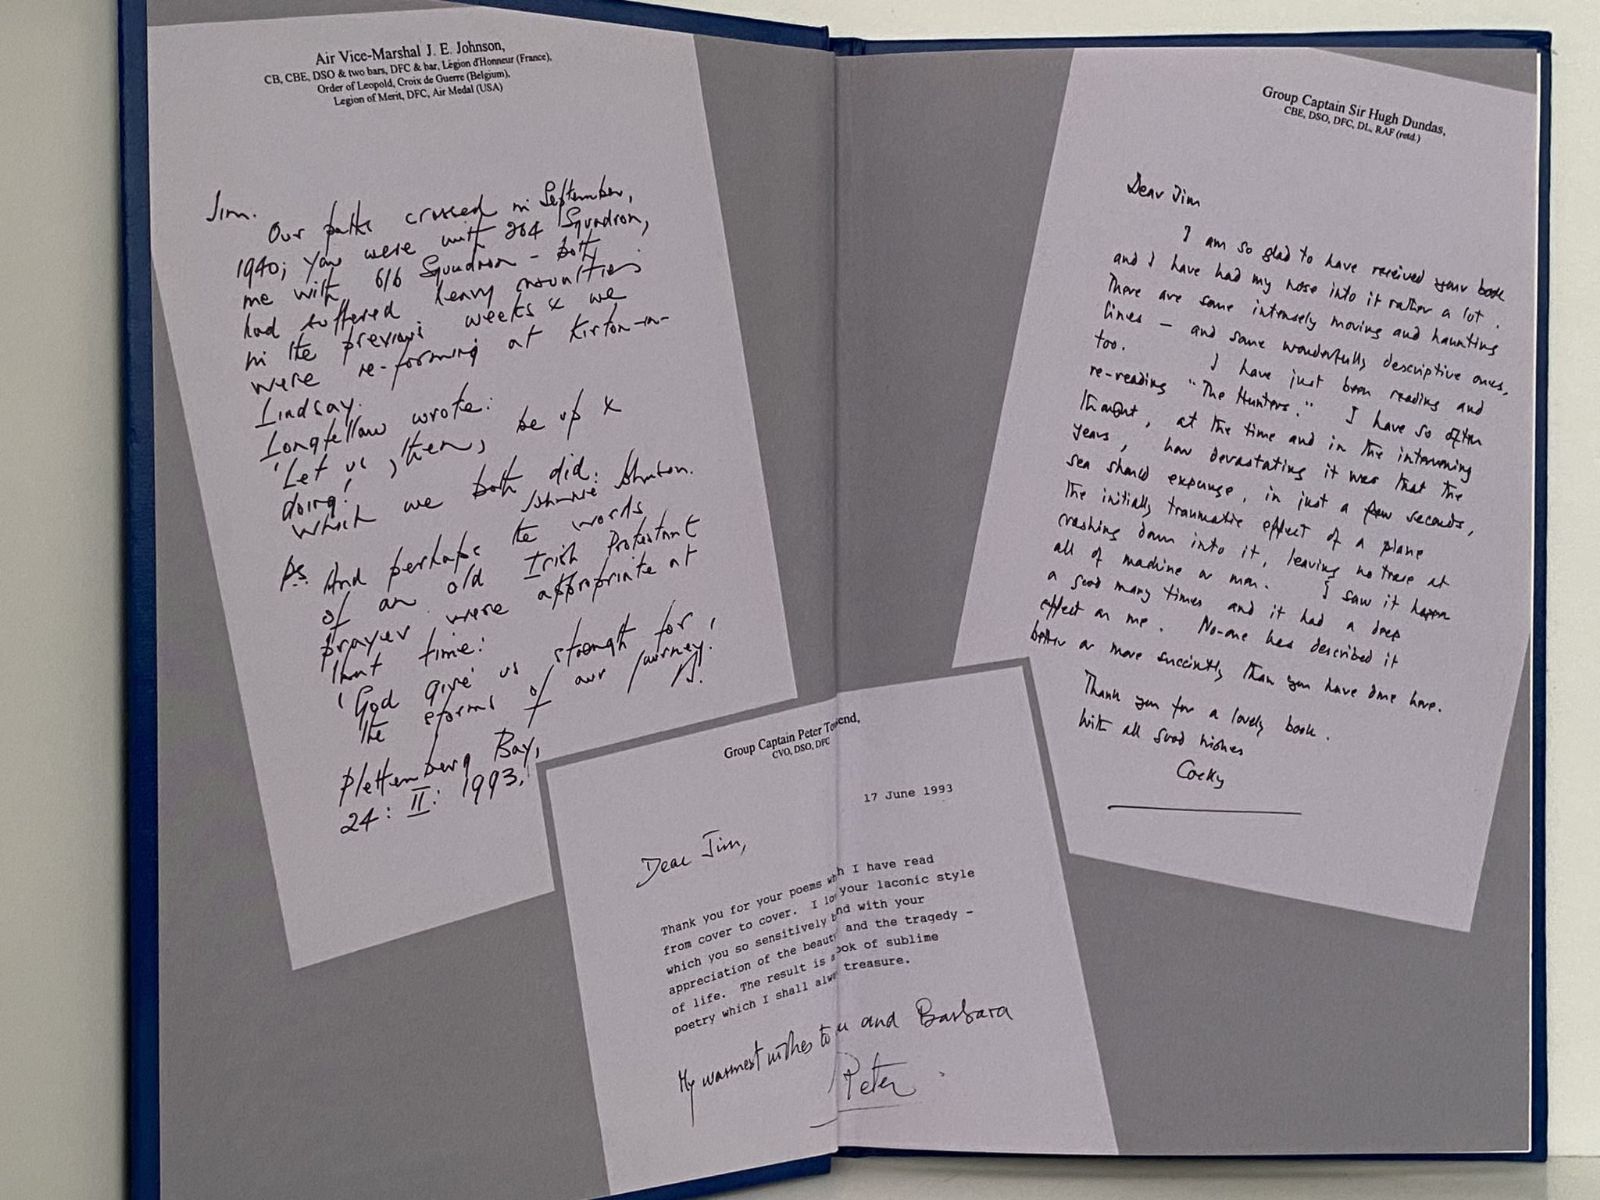 Air Vice-Marshal J. E. Johnson,
CB, CBE, DSO & two bars, DFC & bar, Légion d'Honneur (France),
Order of Leopold, Croix de Guerre (Belgium),
Legion of Merit, DFC, Air Medal (USA)
Jim.
Our paths crossed in September,
1940; you were with 264 Squadron,
me with 616 Squadron - both
had suffered heavy casualties
in the previous weeks & we
were re-forming at Kirton-in-
Lindsay.
Longfellow wrote:
'Let us, then, be up &
doing!'
Which we both did.
Johnnie Johnson.
Ps. And perhaps the words
of an old Irish Protestant
prayer were appropriate at
that time:
'God give us strength for
the storms of our journey.'
J.
Plettenberg Bay,
24: II: 1993.
Group Captain Peter Townsend,
CVO, DSO, DFC
17 June 1993
Dear Jim,
Thank you for your poems wh h I have read
from cover to cover. I lo your laconic style
which you so sensitively b nd with your
appreciation of the beaut and the tragedy -
of life. The result is a ook of sublime
poetry which I shall alw treasure.
My warmest wishes to u and Barbara
Peter
Group Captain Sir Hugh Dundas,
CBE, DSO, DFC, DL, RAF (retd.)
Dear Jim
I am so glad to have received your book
and I have had my nose into it rather a lot.
There are some intensely moving and haunting
lines - and some wonderfully descriptive ones,
too. I have just been reading and
re-reading "The Hunters." I have so often
thought, at the time and in the intervening
years, how devastating it was that the
sea should expunge, in just a few seconds,
the initially traumatic effect of a plane
crashing down into it, leaving no trace at
all of machine or man. I saw it happen
a good many times and it had a deep
effect on me. No-one has described it
better or more succinctly than you have done here.
Thank you for a lovely book.
With all good wishes
Cocky